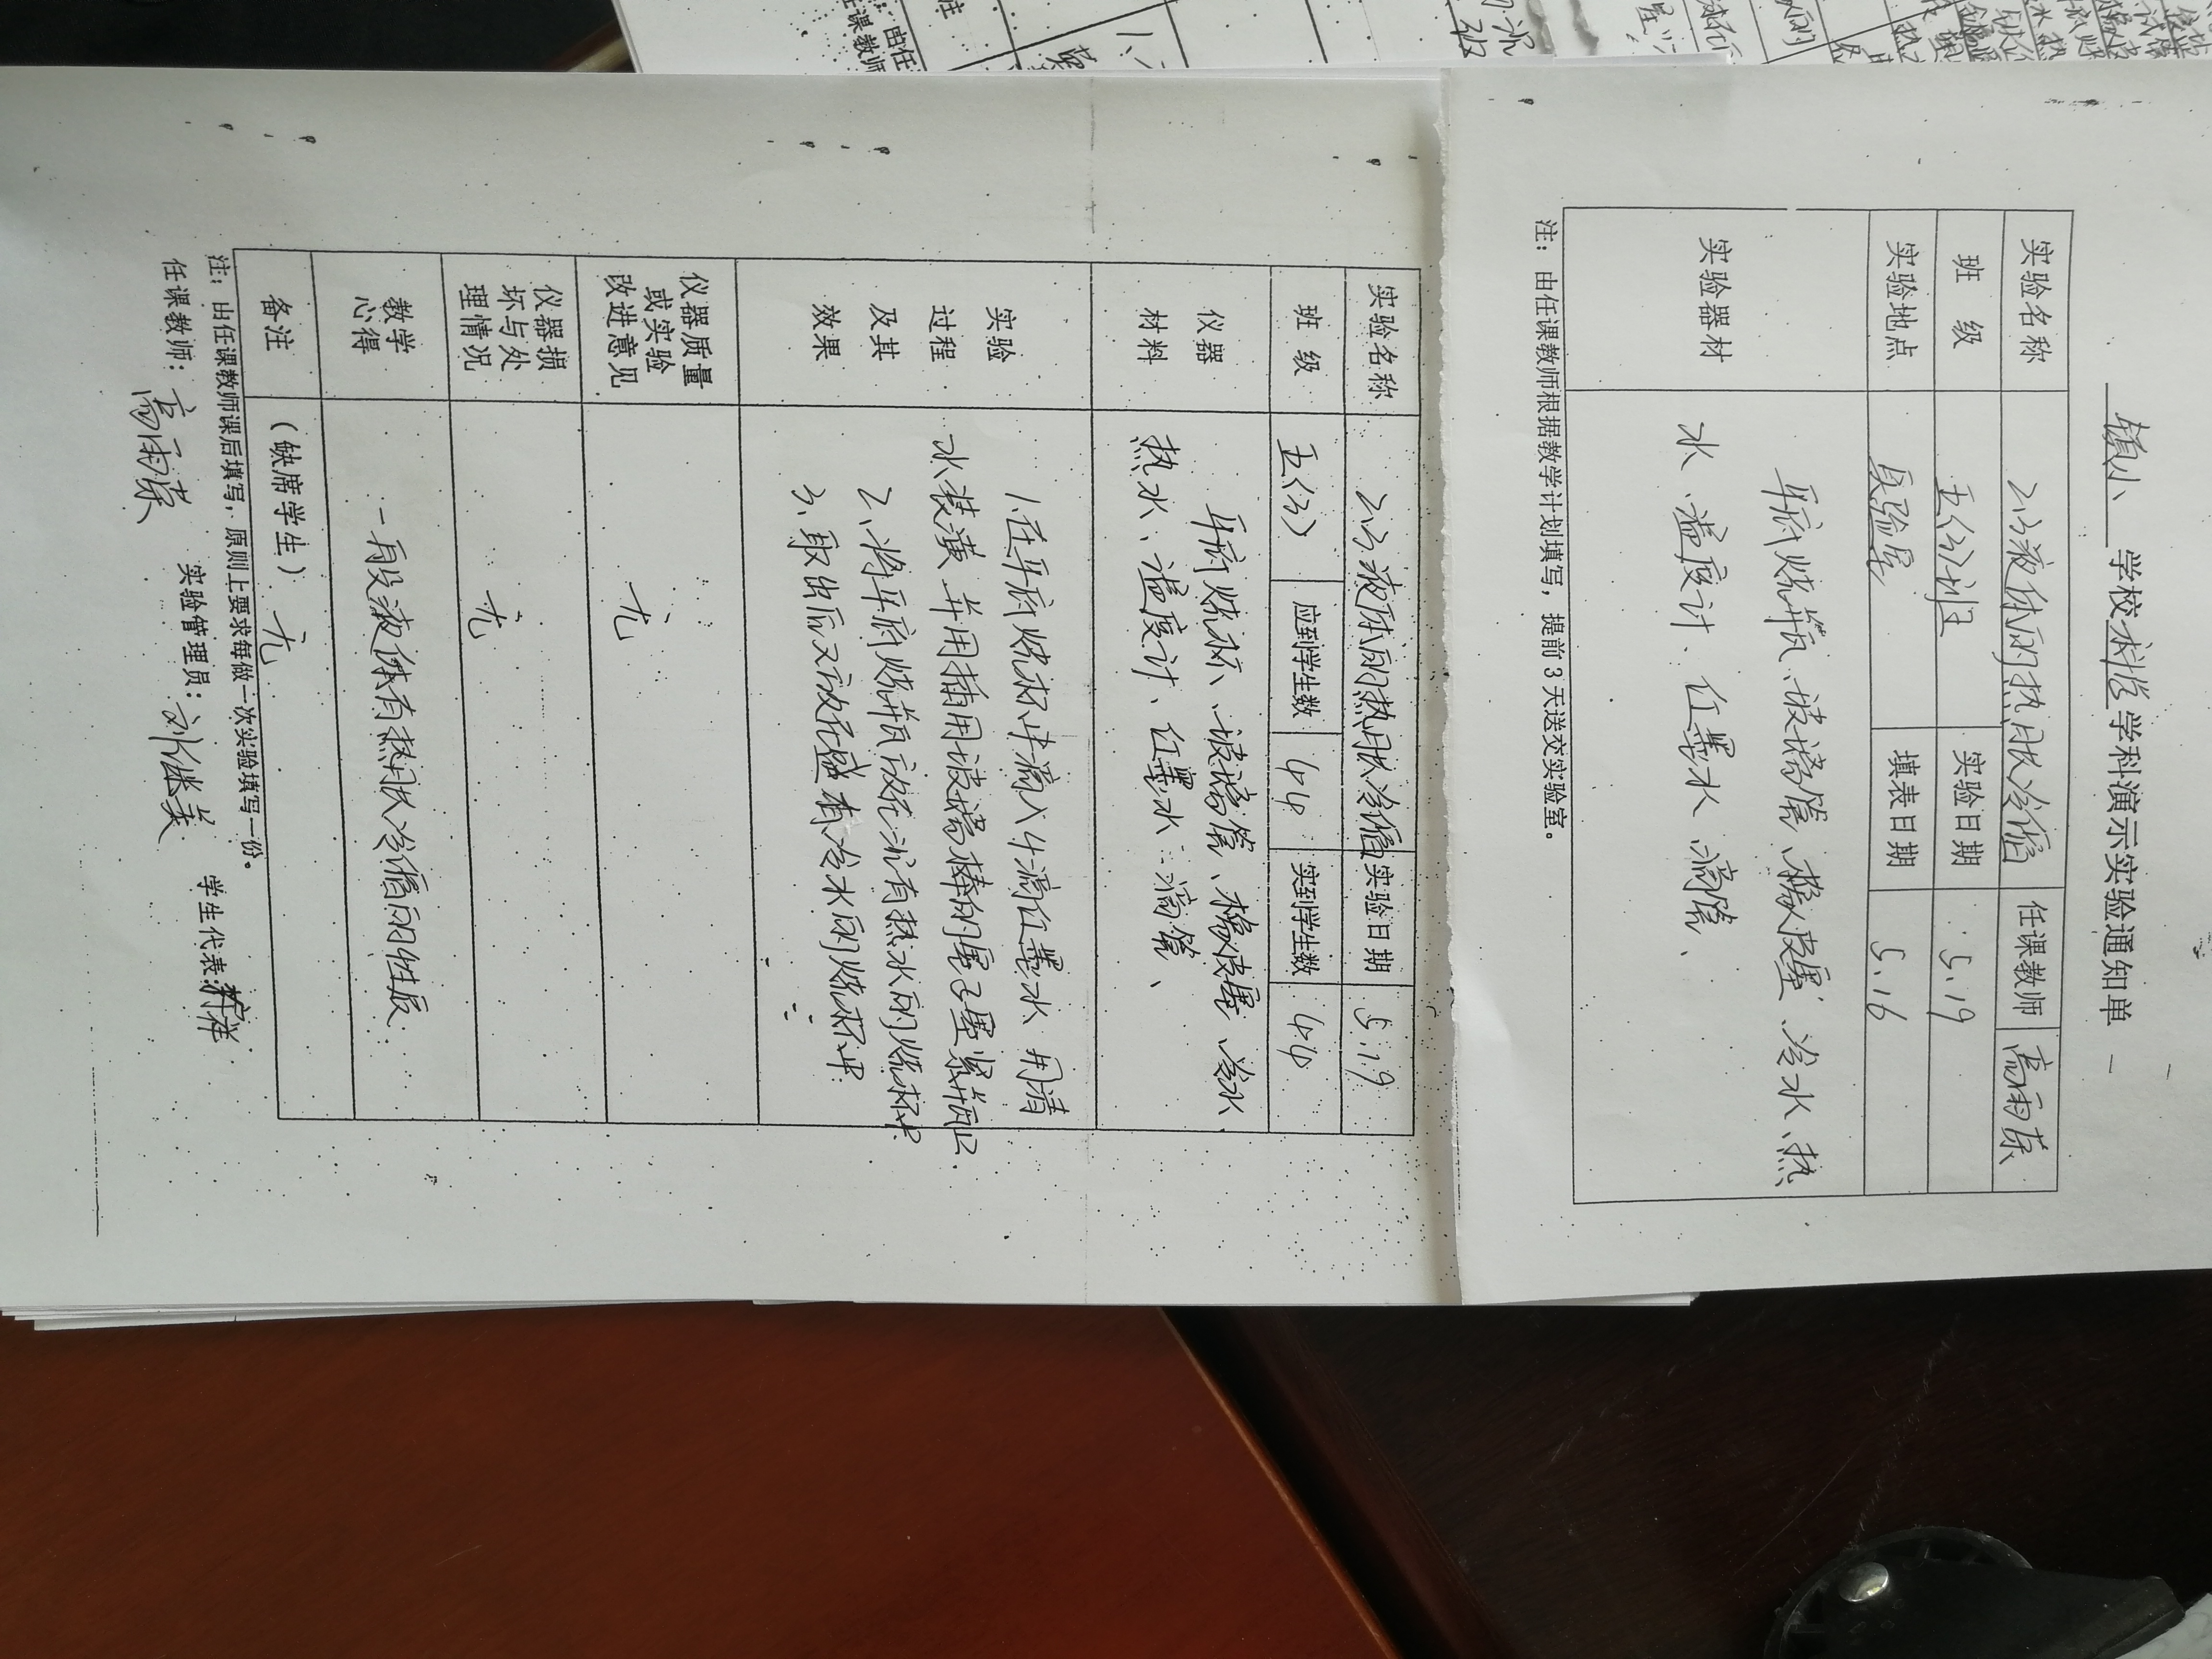 镇小 学校 科学 学科演示实验通知单
实验名称 23液体的热胀冷缩 任课教师 高雨荣
班 级 五(3)班 实验日期 5.19
实验地点 实验屋 填表日期 5.16
实验器材
平底烧瓶、玻璃管、橡皮塞、冷水、热
水、温度计、红墨水、滴管、
注: 由任课教师根据教学计划填写, 提前3天送交实验室。
实验名称 23液体的热胀冷缩 实验日期 5.19
班 级 五(3) 应到学生数 44 实到学生数 44
仪器
材料
平底烧杯、玻璃管、橡皮塞、冷水
热水、温度计、红墨水、滴管、
实验
过程
及其
效果
1.在平底烧杯中滴入4滴红墨水 用清
水装满 并用插用玻璃棒的塞子塞紧瓶口.
2、将平底烧瓶放在沉有热水的烧杯中.
3、取出后又放在盛有冷水的烧杯中.
仪器质量
或实验
改进意见
无
仪器损
坏与处
理情况
无
教学
心得
一般液体有热胀冷缩的性质.
备注 (缺席学生) 无
注: 由任课教师课后填写, 原则上要求每做一次实验填写一份。
任课教师: 高雨荣 实验管理员: 刘继美 学生代表: